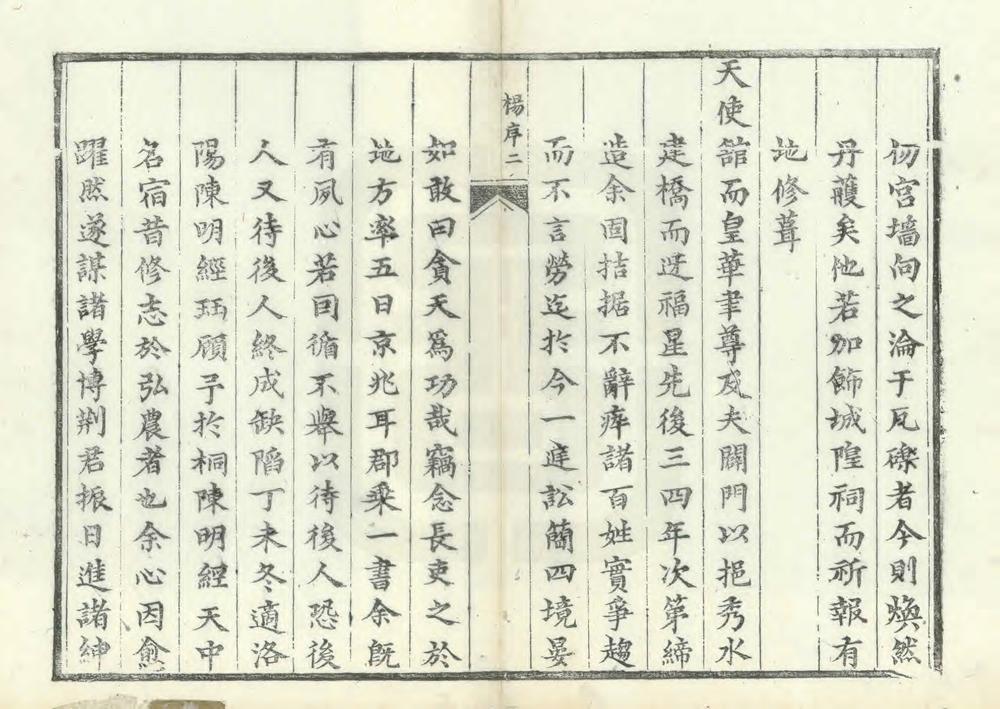 仞宫墻向之淪于瓦礫者今則煥然
丹雘矣他若加飾城隍祠而祈報有
地修葺
天使舘而皇華聿尊及夫闢門以挹秀水
建橋而迓福星先後三四年次第締
造余固拮据不辭瘁諸百姓實爭趨
而不言勞迄於今一庭訟簡四境晏
楊序二
如敢曰貪天爲功哉竊念長吏之於
地方率五日京兆耳郡乗一書余旣
有夙心若因循不舉以待後人恐後
人又待後人終成缺陷丁未冬適洛
陽陳明經珏顧予於桐陳明經天中
名宿昔修志於弘農者也余心因愈
躍然遂謀諸學博荆君振日進諸紳